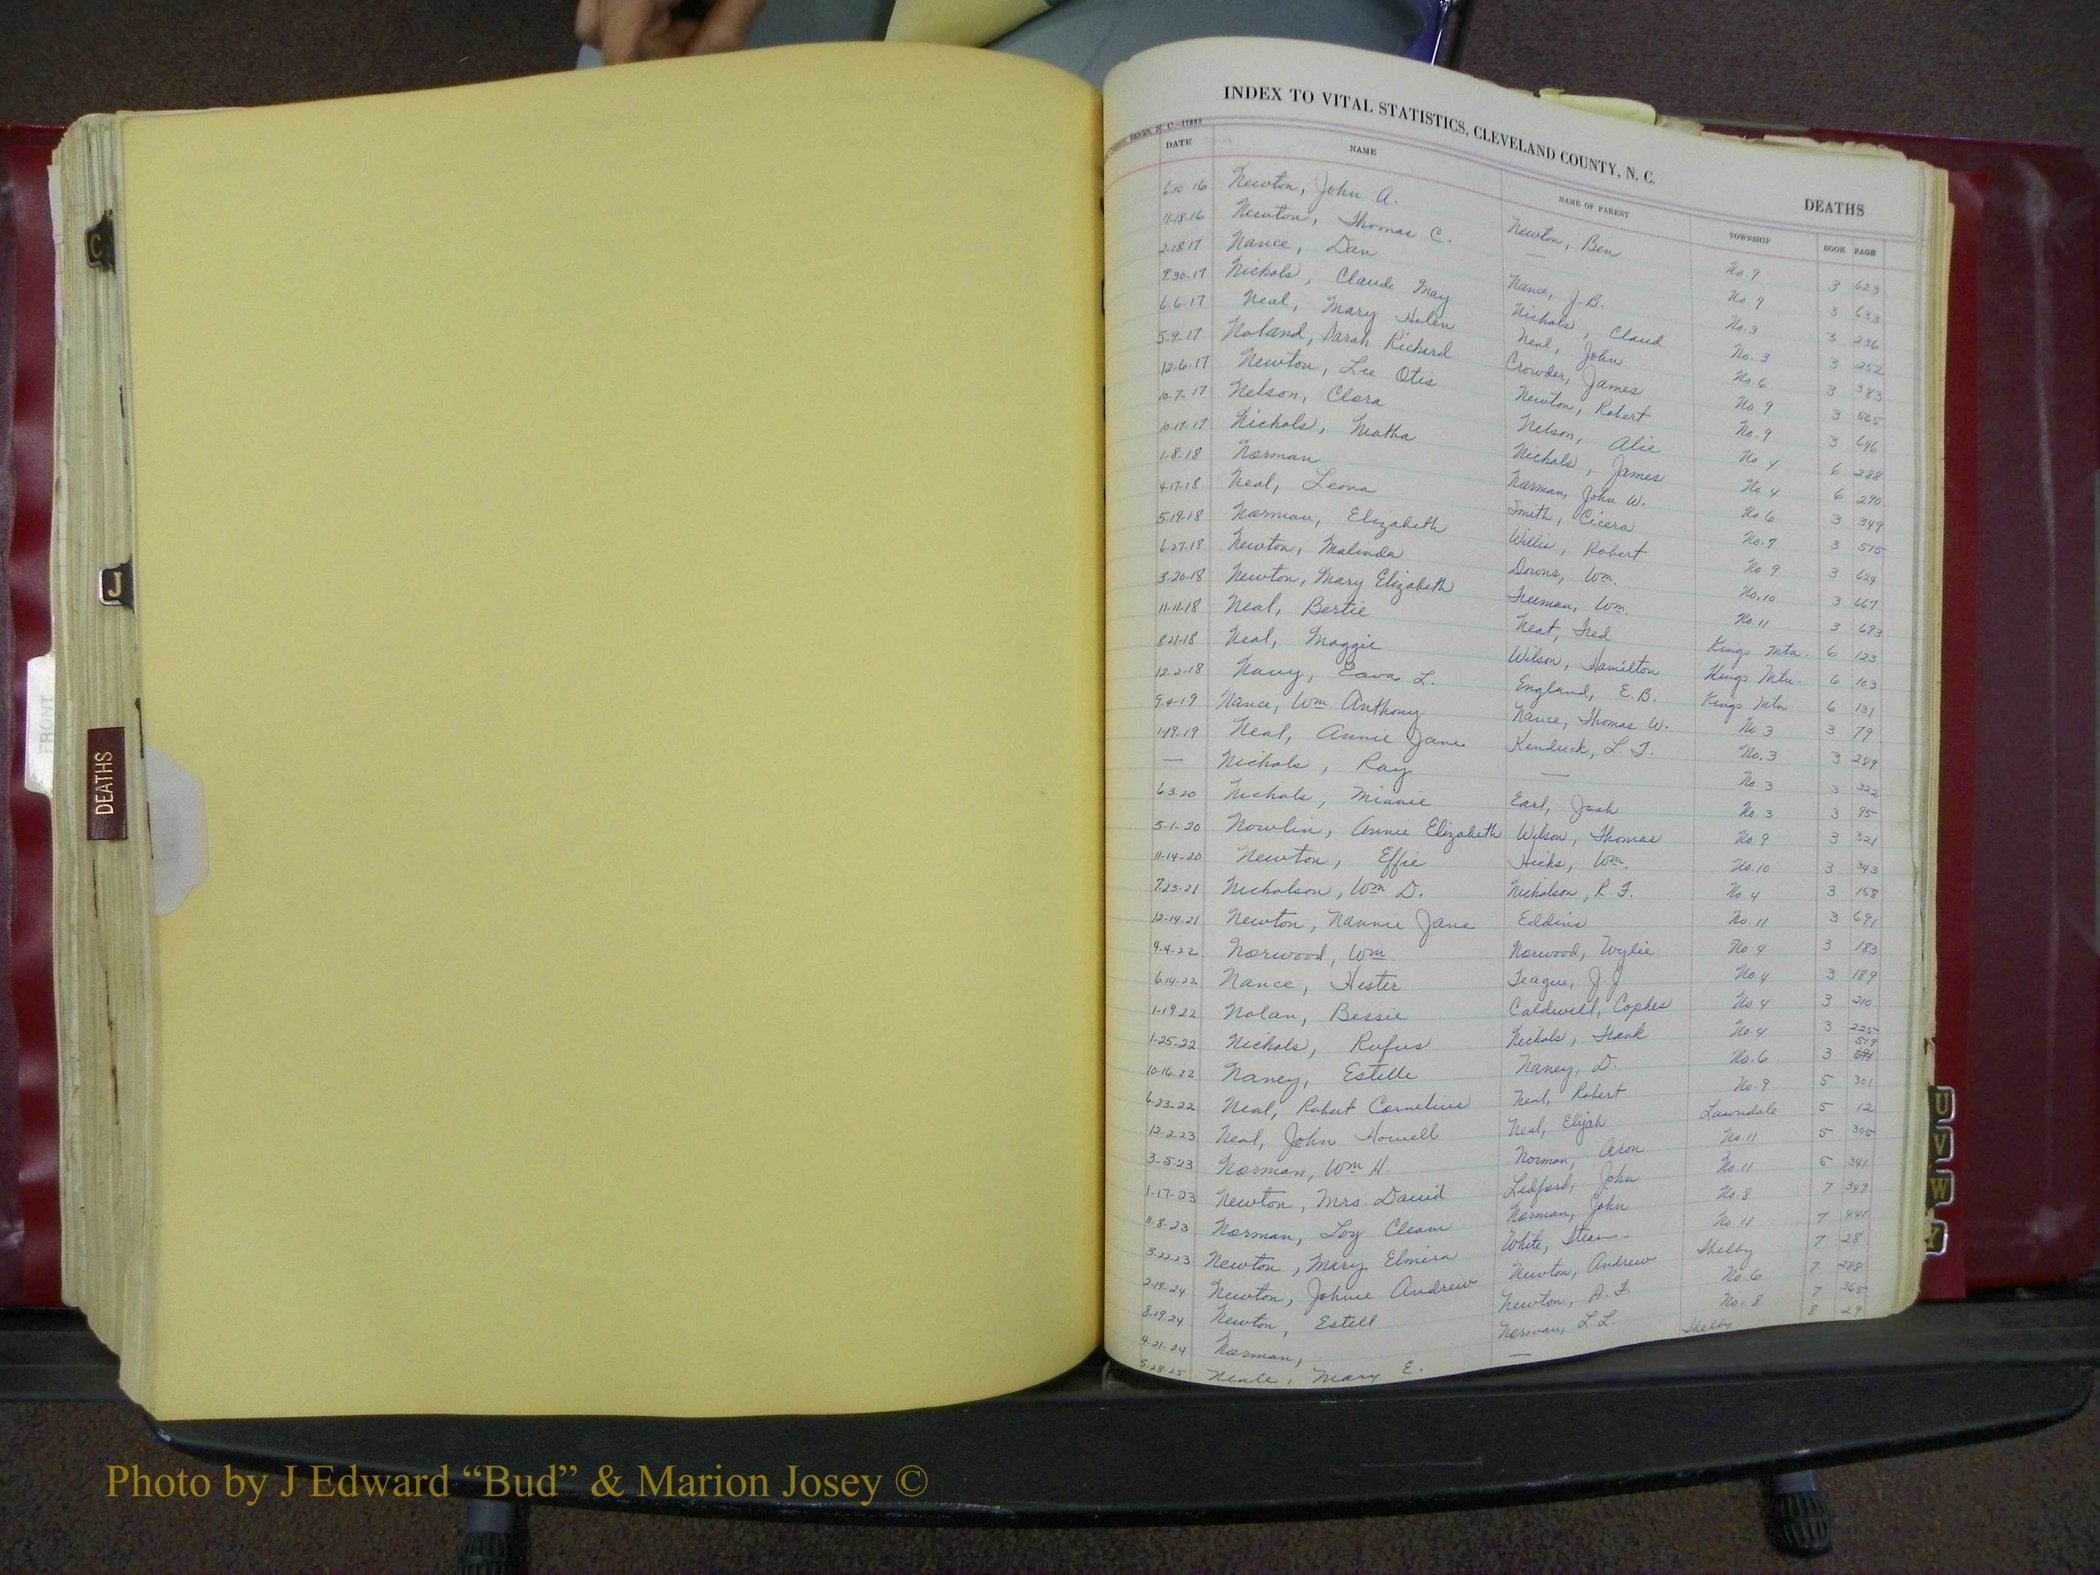 INDEX TO VITAL STATISTICS, CLEVELAND COUNTY, N. C.
DEATHS
N. C.—17882
DATE NAME NAME OF PARENT TOWNSHIP BOOK PAGE
6-10-16 Newton, John A. Newton, Ben No. 9 3 623
11-18-16 Newton, Thomas C. — No. 9 3 633
2-18-17 Nance, Dan Nance, J.B. No. 3 3 236
9-30-17 Nichols, Claude May Nichols, Claud No. 3 3 252
6-6-17 Neal, Mary Helen Neal, John No 6 3 383
5-9-17 Noland, Sarah Richard Crowder, James No 9 3 565
12-6-17 Newton, Lee Otis Newton, Robert No. 9 3 646
10-7-17 Nelson, Clora Nelson, Alie No 4 6 288
10-17-17 Nichols, Matha Nichols, James No 4 6 290
1-8-18 Norman Norman, John W. No 6 3 349
4-17-18 Neal, Leona Smith, Cicero No. 7 3 575
5-19-18 Norman, Elizabeth Willis, Robert No 9 3 624
6-27-18 Newton, Malinda Downs, Wm. No. 10 3 667
3-20-18 Newton, Mary Elizabeth Freeman, Wm. No. 11 3 693
11-11-18 Neal, Bertie Neat, Fred Kings Mtn. 6 123
8-21-18 Neal, Maggie Wilson, Hamilton Kings Mtn. 6 103
12-2-18 Navy, Eava L. England, E.B. Kings Mtn. 6 131
9-4-19 Nance, Wm Anthony Nance, Thomas W. No 3 3 79
1-19-19 Neal, Annie Jane Kendrick, L.T. No. 3 3 289
— Nichols, Ray — No 3 3 322
6-3-20 Nichols, Minnie Earl, Josh No. 3 3 95
5-1-20 Nowlin, Annie Elizabeth Wilson, Thomas No. 9 3 321
11-14-20 Newton, Effie Hicks, Wm. No. 10 3 343
7-23-21 Nicholson, Wm D. Nicholson, R.F. No 4 3 158
12-14-21 Newton, Nannie Jane Eddins No 11 3 691
4-4-22 Norwood, Wm. Norwood, Wylie No 4 3 183
6-14-22 Nance, Hester Teague, J.J. No. 4 3 189
1-19-22 Nolan, Bessie Caldwell, Cophes No 4 3 210
1-25-22 Nichols, Rufus Nichols, Frank No. 4 3 225
10-16-22 Naney, Estelle Naney, D. No. 6 3 519
6-23-22 Neal, Robert Cornelius Neal, Robert No. 9 5 301
12-2-23 Neal, John Howell Neal, Elijah Lawndale 5 12
3-5-23 Norman, Wm H. Norman, Aron No. 11 5 305
1-17-23 Newton, Mrs. David Ledford, John No. 11 5 341
11-8-23 Norman, Loy Cleam Norman, John No. 8 7 349
3-22-23 Newton, Mary Elmira White, No 11 7 441
2-19-24 Newton, Johnie Andrew Newton, Andrew Shelby 7 28
8-19-24 Newton, Estell Newton, A.F. No. 6 7 288
4-21-24 Norman, Norman, L.L. No. 8 7 365
5-28-25 Neale, Mary E. — Shelby 8 29
C
J
FRONT
DEATHS
U
V
W
Y
Photo by J Edward “Bud” & Marion Josey ©